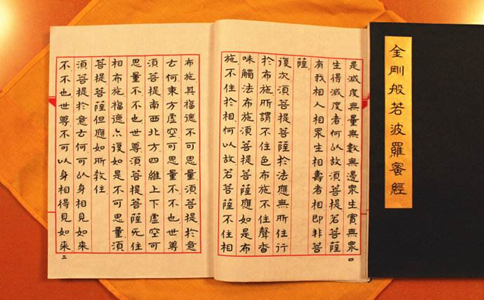 金剛般若波羅蜜經
是滅度無量無數無邊眾生實無眾
生得滅度者何以故須菩提若菩薩
有我相人相眾生相壽者相即非菩
薩
復次須菩提菩薩於法應無所住行
於布施所謂不住色布施不住聲香
味觸法布施須菩提菩薩應如是布
施不住於相何以故若菩薩不住相
布施其福德不可思量須菩提於意
云何東方虛空可思量不不也世尊
須菩提南西北方四維上下虛空可
思量不不也世尊須菩提菩薩无住
相布施福德亦復如是不可思量須
菩提菩薩但應如所教住
須菩提於意云何可以身相見如來
不不也世尊不可以身相得見如來